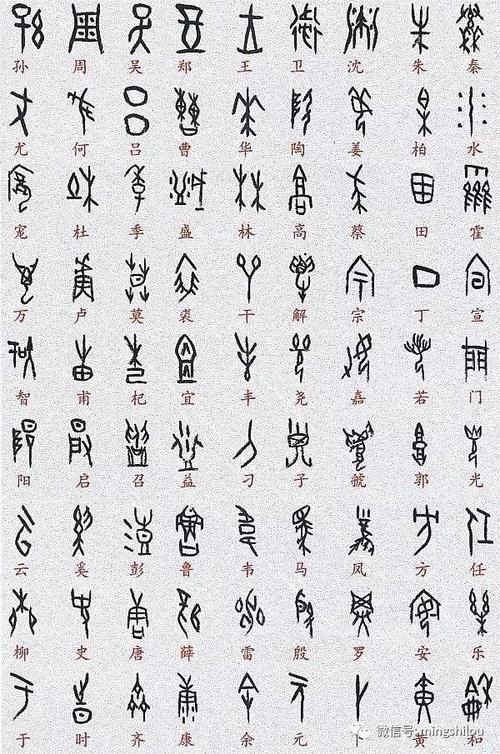 孙 周 吴 郑 王 卫 沈 朱 秦
尤 何 吕 曹 华 陶 姜 柏 水
宠 杜 季 盛 林 高 蔡 田 霍
万 卢 莫 裘 干 解 宗 丁 宣
智 甫 杞 宜 丰 尧 嘉 若 门
阳 启 召 益 刁 子 虢 郭 光
云 奚 彭 鲁 韦 马 凤 方 任
柳 史 唐 薛 雷 殷 罗 安 乐
于 时 齐 康 余 元 卜 黄 和
微信号: mingshilou